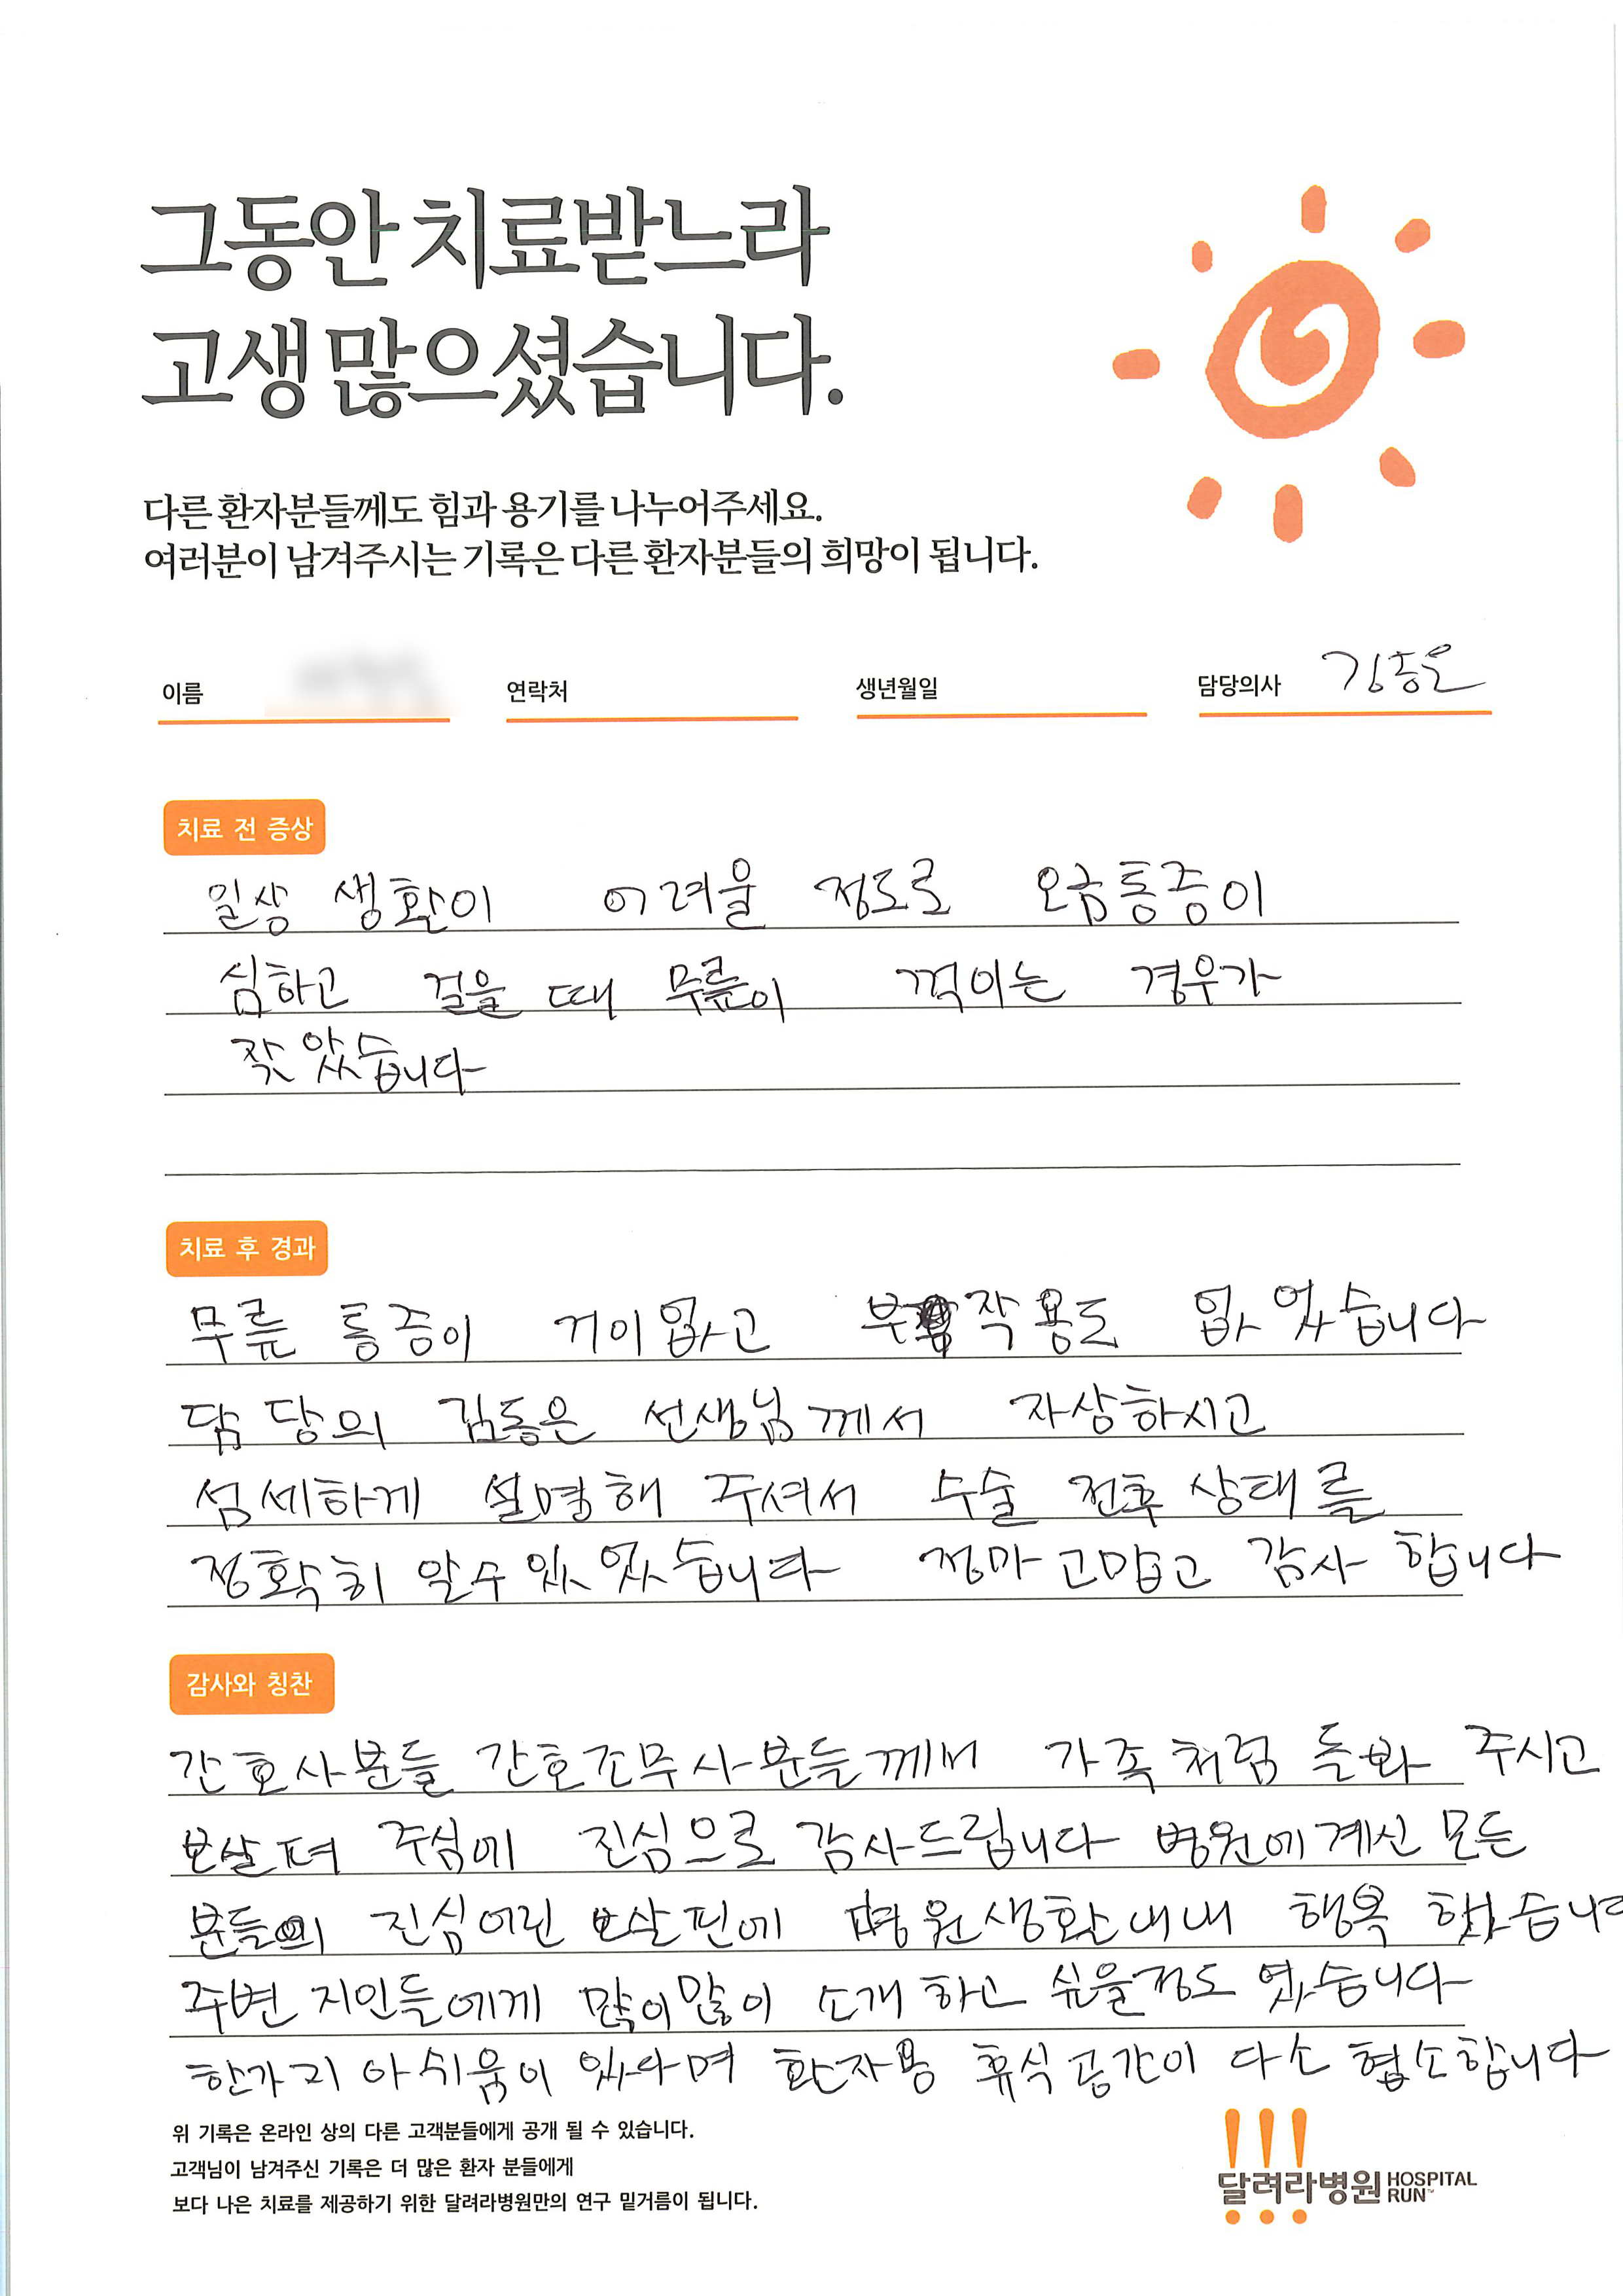 그동안 치료받느라
고생 많으셨습니다.
다른 환자분들께도 힘과 용기를 나누어주세요.
여러분이 남겨주시는 기록은 다른 환자분들의 희망이 됩니다.
이름 연락처 생년월일 담당의사 김동은
치료 전 증상
일상 생활이 어려울 정도로 오금통증이
심하고 걸을 때 무릎이 꺽이는 경우가
잦았습니다
치료 후 경과
무릎 통증이 거이없고 부작용도 없었습니다
담당의 김동은 선생님께서 자상하시고
섬세하게 설명해 주셔서 수술 전후 상태를
정확히 알수있었습니다 정마 고맙고 감사 합니다
감사와 칭찬
간호사분들 간호조무사분들께서 가족처럼 돌봐 주시고
보살펴 주심에 진심으로 감사드립니다 병원에계신 모든
분들의 진심어린 보살핀에 병원생활내내 행복 했습니다
주변 지인들에게 많이많이 소개 하고 싶을정도 였습니다
한가지 아쉬움이 있다며 환자용 휴식공간이 다소 협소합니다
위 기록은 온라인 상의 다른 고객분들에게 공개 될 수 있습니다.
고객님이 남겨주신 기록은 더 많은 환자 분들에게
보다 나은 치료를 제공하기 위한 달려라병원만의 연구 밑거름이 됩니다.
달려라병원 HOSPITAL RUN™